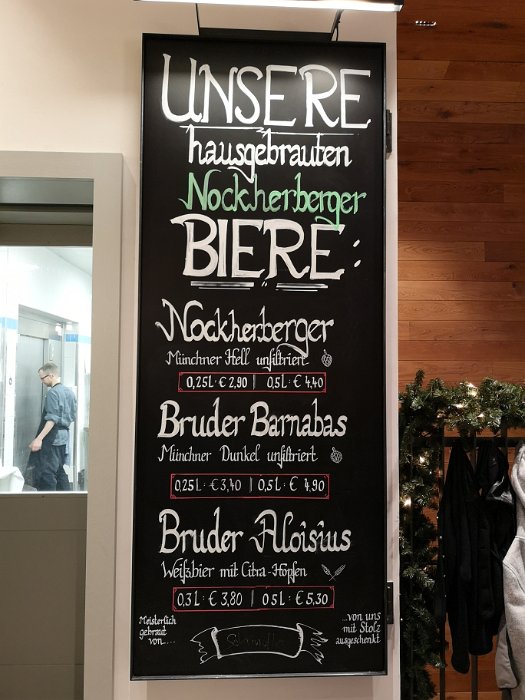 UNSERE
hausgebrauten
Nockherberger
BIERE:
Nockherberger
Münchner Hell unfiltriert
0,25L·€2,90 | 0,5L·€4,40
Bruder Barnabas
Münchner Dunkel unfiltriert
0,25L·€3,40 | 0,5L·€4,90
Bruder Aloisius
Weißbier mit Citra-Hopfen
0,3L·€3,80 | 0,5L·€5,30
Meisterlich
gebraut
von....
...von uns
mit Stolz
ausgeschenkt